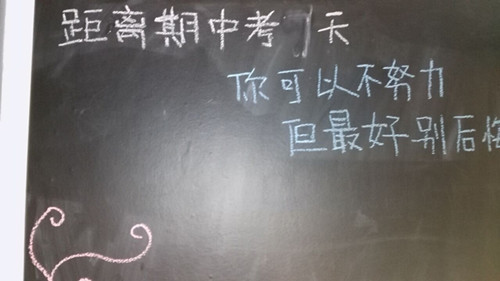 距离期中考1天
你可以不努力
但最好别后悔